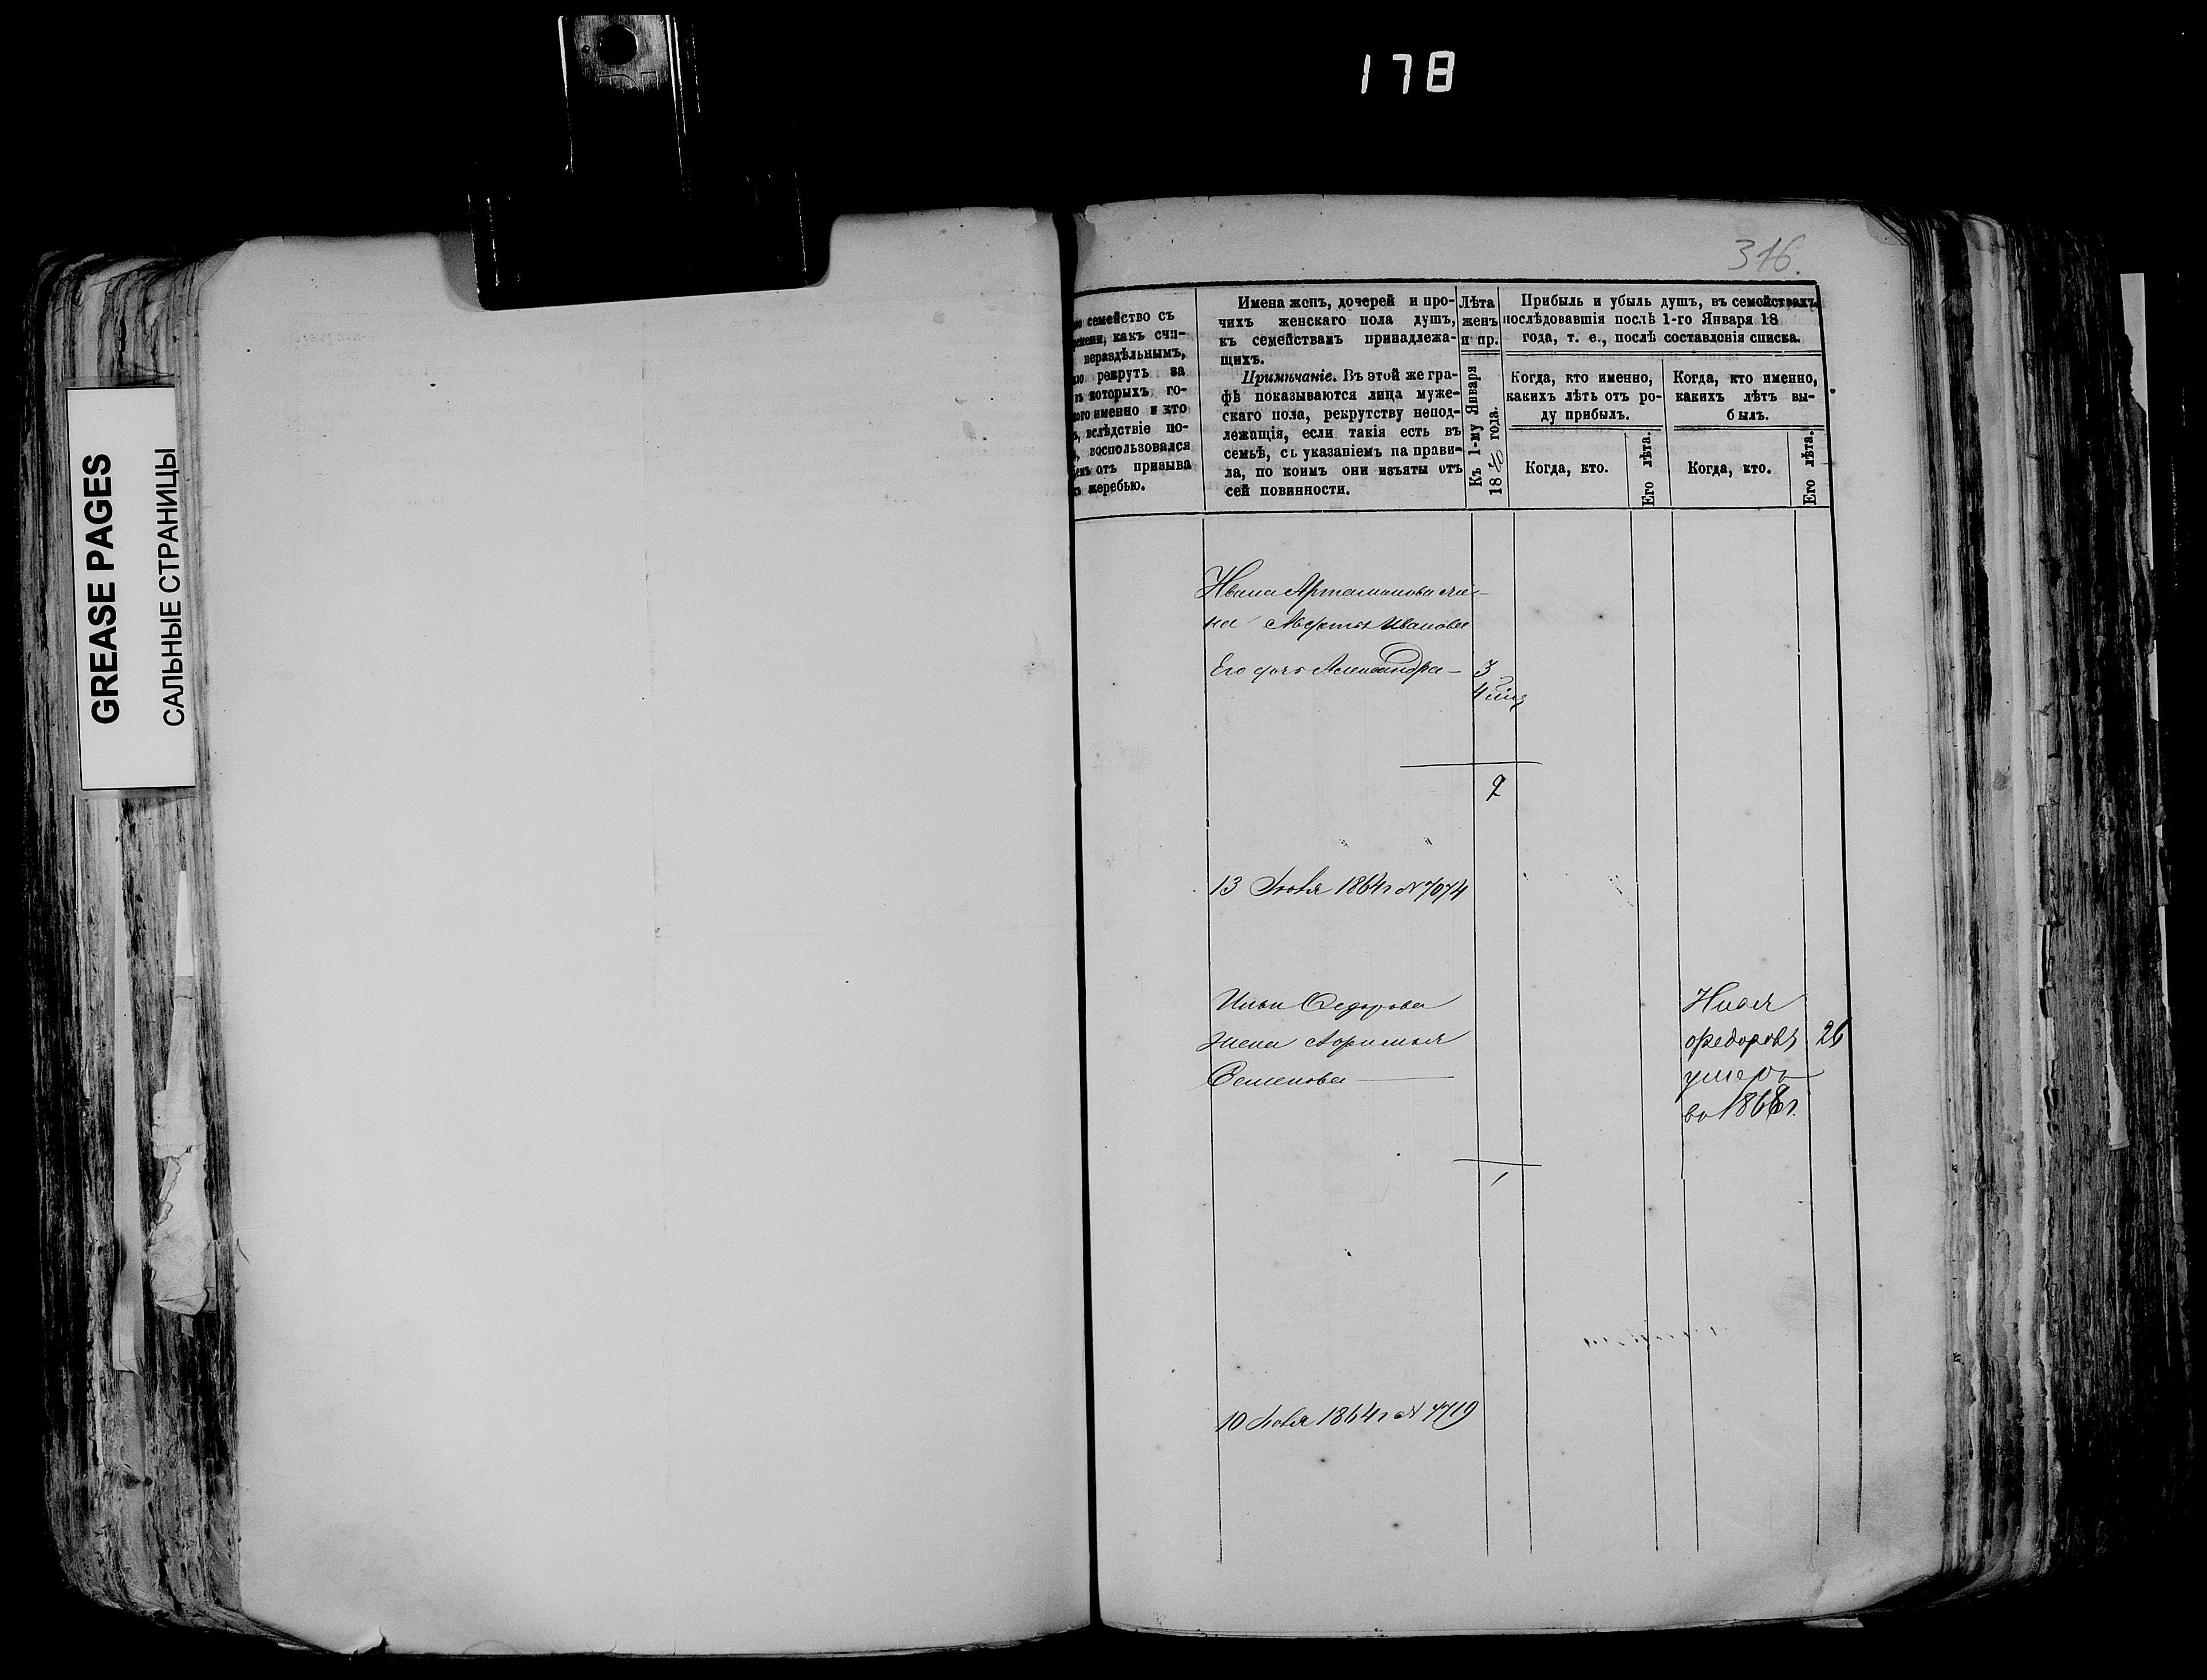 178
GREASE PAGES
САЛЬНЫЕ СТРАНИЦЫ
316.
семейство съ
какъ счи-
нераздѣльнымъ,
рекрутъ за
которыхъ го-
именно и кто
вслѣдствіе по-
воспользовался
отъ призыва
жеребью.
Имена женъ, дочерей и про-
чихъ женскаго пола душъ,
къ семействамъ принадлежа-
щихъ.
Примѣчаніе. Въ этой же гра-
фѣ показываются лица муже-
скаго пола, рекрутству непод-
лежащія, если такія есть въ
семьѣ, съ указаніемъ на прави-
ла, по коимъ они изъяты отъ
сей повинности.
Лѣта
женъ
и пр.
Къ 1-му Января
18 года.
Прибыль и убыль душъ, въ семействахъ
послѣдовавшія послѣ 1-го Января 18
года, т. е., послѣ составленія списка.
Когда, кто именно,
какихъ лѣтъ отъ ро-
ду прибылъ.
Когда, кто.
Его лѣта.
Когда, кто именно,
какихъ лѣтъ вы-
былъ.
Когда, кто.
Его лѣта.
Ивана Артамонова же-
на Иванова
Его дочь Александра — 3
2
13 Июля 1864 г № 7074
Ильи Федорова
жена
Семенова
Илья
Федоровъ 26
умеръ
въ 1868 г.
1
10 Июля 1864 г № 7719